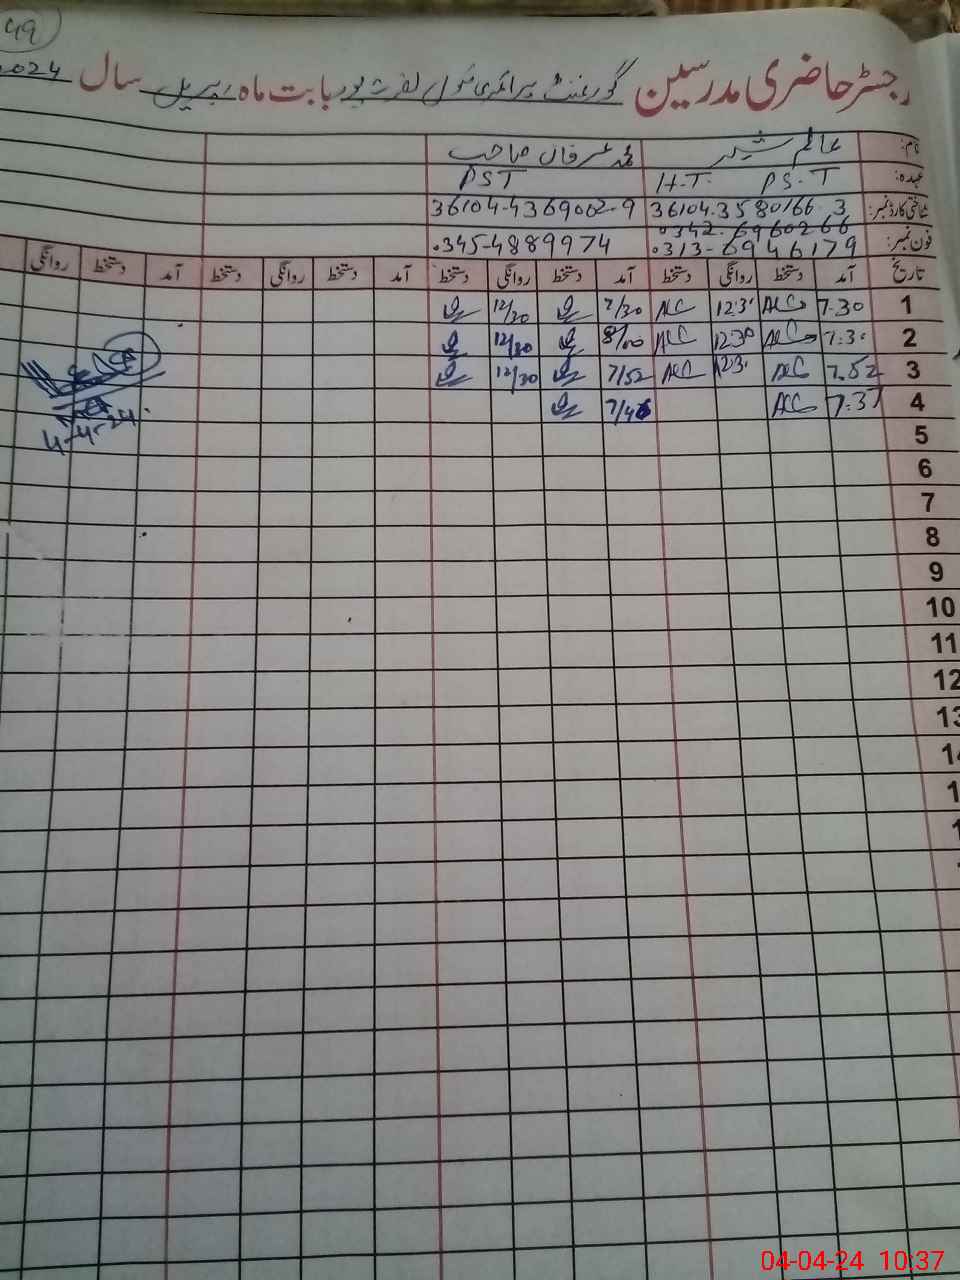 49
رجسٹر حاضری مدرسین گورنمنٹ پرائمری سکول نصرت پور بابت ماہ اپریل سال 2024
نام: عالم شیر محمد عرفان صاحب
عہدہ: H.T. P.S.T PST
شناختی کارڈ نمبر: 36104-3580166-3 36104-4369002-9
0342-6960266
فون نمبر: 0313-6946179 0345-4889974
تاریخ آمد دستخط روانگی دستخط آمد دستخط روانگی دستخط آمد دستخط روانگی دستخط آمد دستخط روانگی
1 7.30 12:3 7/30 12/30
2 7:3 12:30 8/00 12/30
3 7.52 12:3 7/52 12/30
4 7:37 7/46
4-4-24
5
6
7
8
9
10
11
12
13
14
1
1
04-04-24 10:37